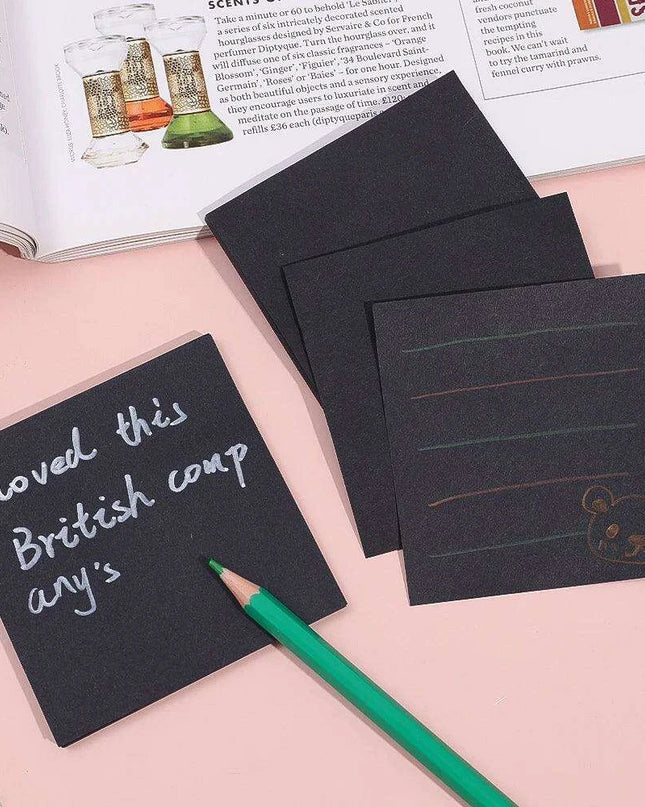 SCENTS O
Take a minute or 60 to behold 'Le Sablier',
a series of six intricately decorated scented
hourglasses designed by Servaire & Co for French
perfumer Diptyque. Turn the hourglass over, and it
will diffuse one of six classic fragrances – 'Orange
Blossom', 'Ginger', 'Figuier', '34 Boulevard Saint-
Germain', 'Roses' or 'Baies' – for one hour. Designed
as both beautiful objects and a sensory experience,
they encourage users to luxuriate in scent and
meditate on the passage of time. £120;
refills £36 each (diptyqueparis.c
fresh coconut
vendors punctuate
the tempting
recipes in this
book. We can't wait
to try the tamarind and
fennel curry with prawns.
loved this
British comp
any's